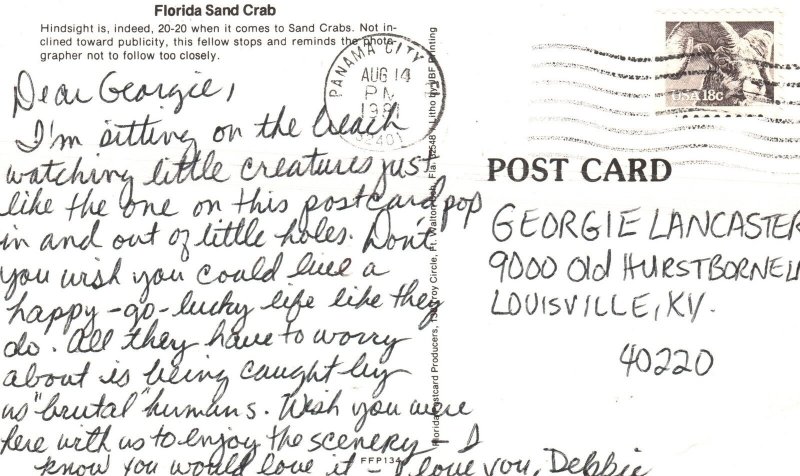 Florida Sand Crab
Hindsight is, indeed, 20-20 when it comes to Sand Crabs. Not in-
clined toward publicity, this fellow stops and reminds the photo-
grapher not to follow too closely.
Dear Georgie,
I'm sitting on the beach
watching little creatures just
like the one on this postcard pop
in and out of little holes. Don't
you wish you could live a
happy-go-lucky life like they
do. All they have to worry
about is being caught by
us "brutal" humans. Wish you were
here with us to enjoy the scenery - I
know you would love it - I love you, Debbie
FFP134
Florida Postcard Producers, Circle, Ft. Walton Fla. Litho by JBF Printing
PANAMA CITY
AUG 14
PM
1981
32401
USA 18c
POST CARD
GEORGIE LANCASTER
9000 Old HURSTBORNE
LOUISVILLE, KY.
40220